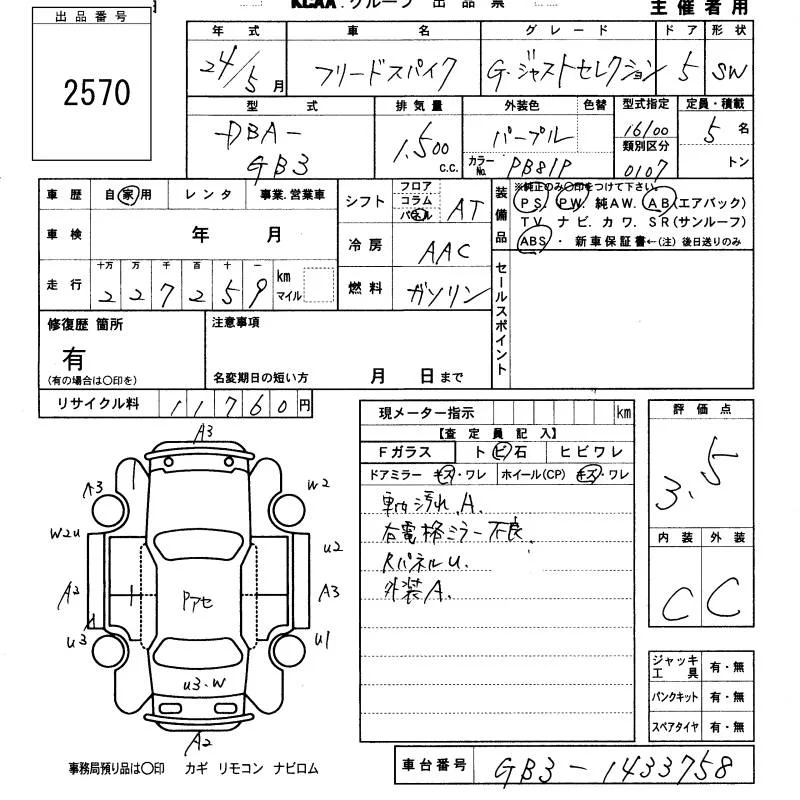 KCAA.グループ 出品票
主催者用
出品番号
2570
年式 車名 グレード ドア 形状
24/5月 フリードスパイク G・ジャストセレクション 5 SW
型式 排気量 外装色 色替 型式指定 定員・積載
DBA- 1,500 パープル 16100 5名
GB3 c.c. カラーNo. PB81P 類別区分 0107 トン
車歴 自家用 レンタ 事業.営業車
シフト フロア コラム パネル AT
装備品 ※純正のみ○印をつけて下さい。
PS. PW. 純AW. AB(エアバック)
TV. ナビ. カワ. SR(サンルーフ)
ABS ・ 新車保証書←(注) 後日送りのみ
車検 年 月
冷房 AAC
走行 十万 万 千 百 十 一 km マイル
227259
燃料 ガソリン
セールスポイント
修復歴 箇所
有
(有の場合は○印を)
注意事項
名変期日の短い方 月 日まで
リサイクル料 11760円
現メーター指示 km
【査定員記入】
Fガラス ト ビ石 ヒビワレ
ドアミラー キズ・ワレ ホイール(CP) キズ・ワレ
車内汚れ.A.
右電格ミラー不良.
Rパネルu.
外装A.
評価点
3.5
内装 外装
C C
A3
A3 W2
W2u u2
A2 A3
Pアセ
u3 u1
u3.W
A2
ジャッキ工具 有・無
パンクキット 有・無
スペアタイヤ 有・無
事務局預り品は○印 カギ リモコン ナビロム
車台番号 GB3-1433758